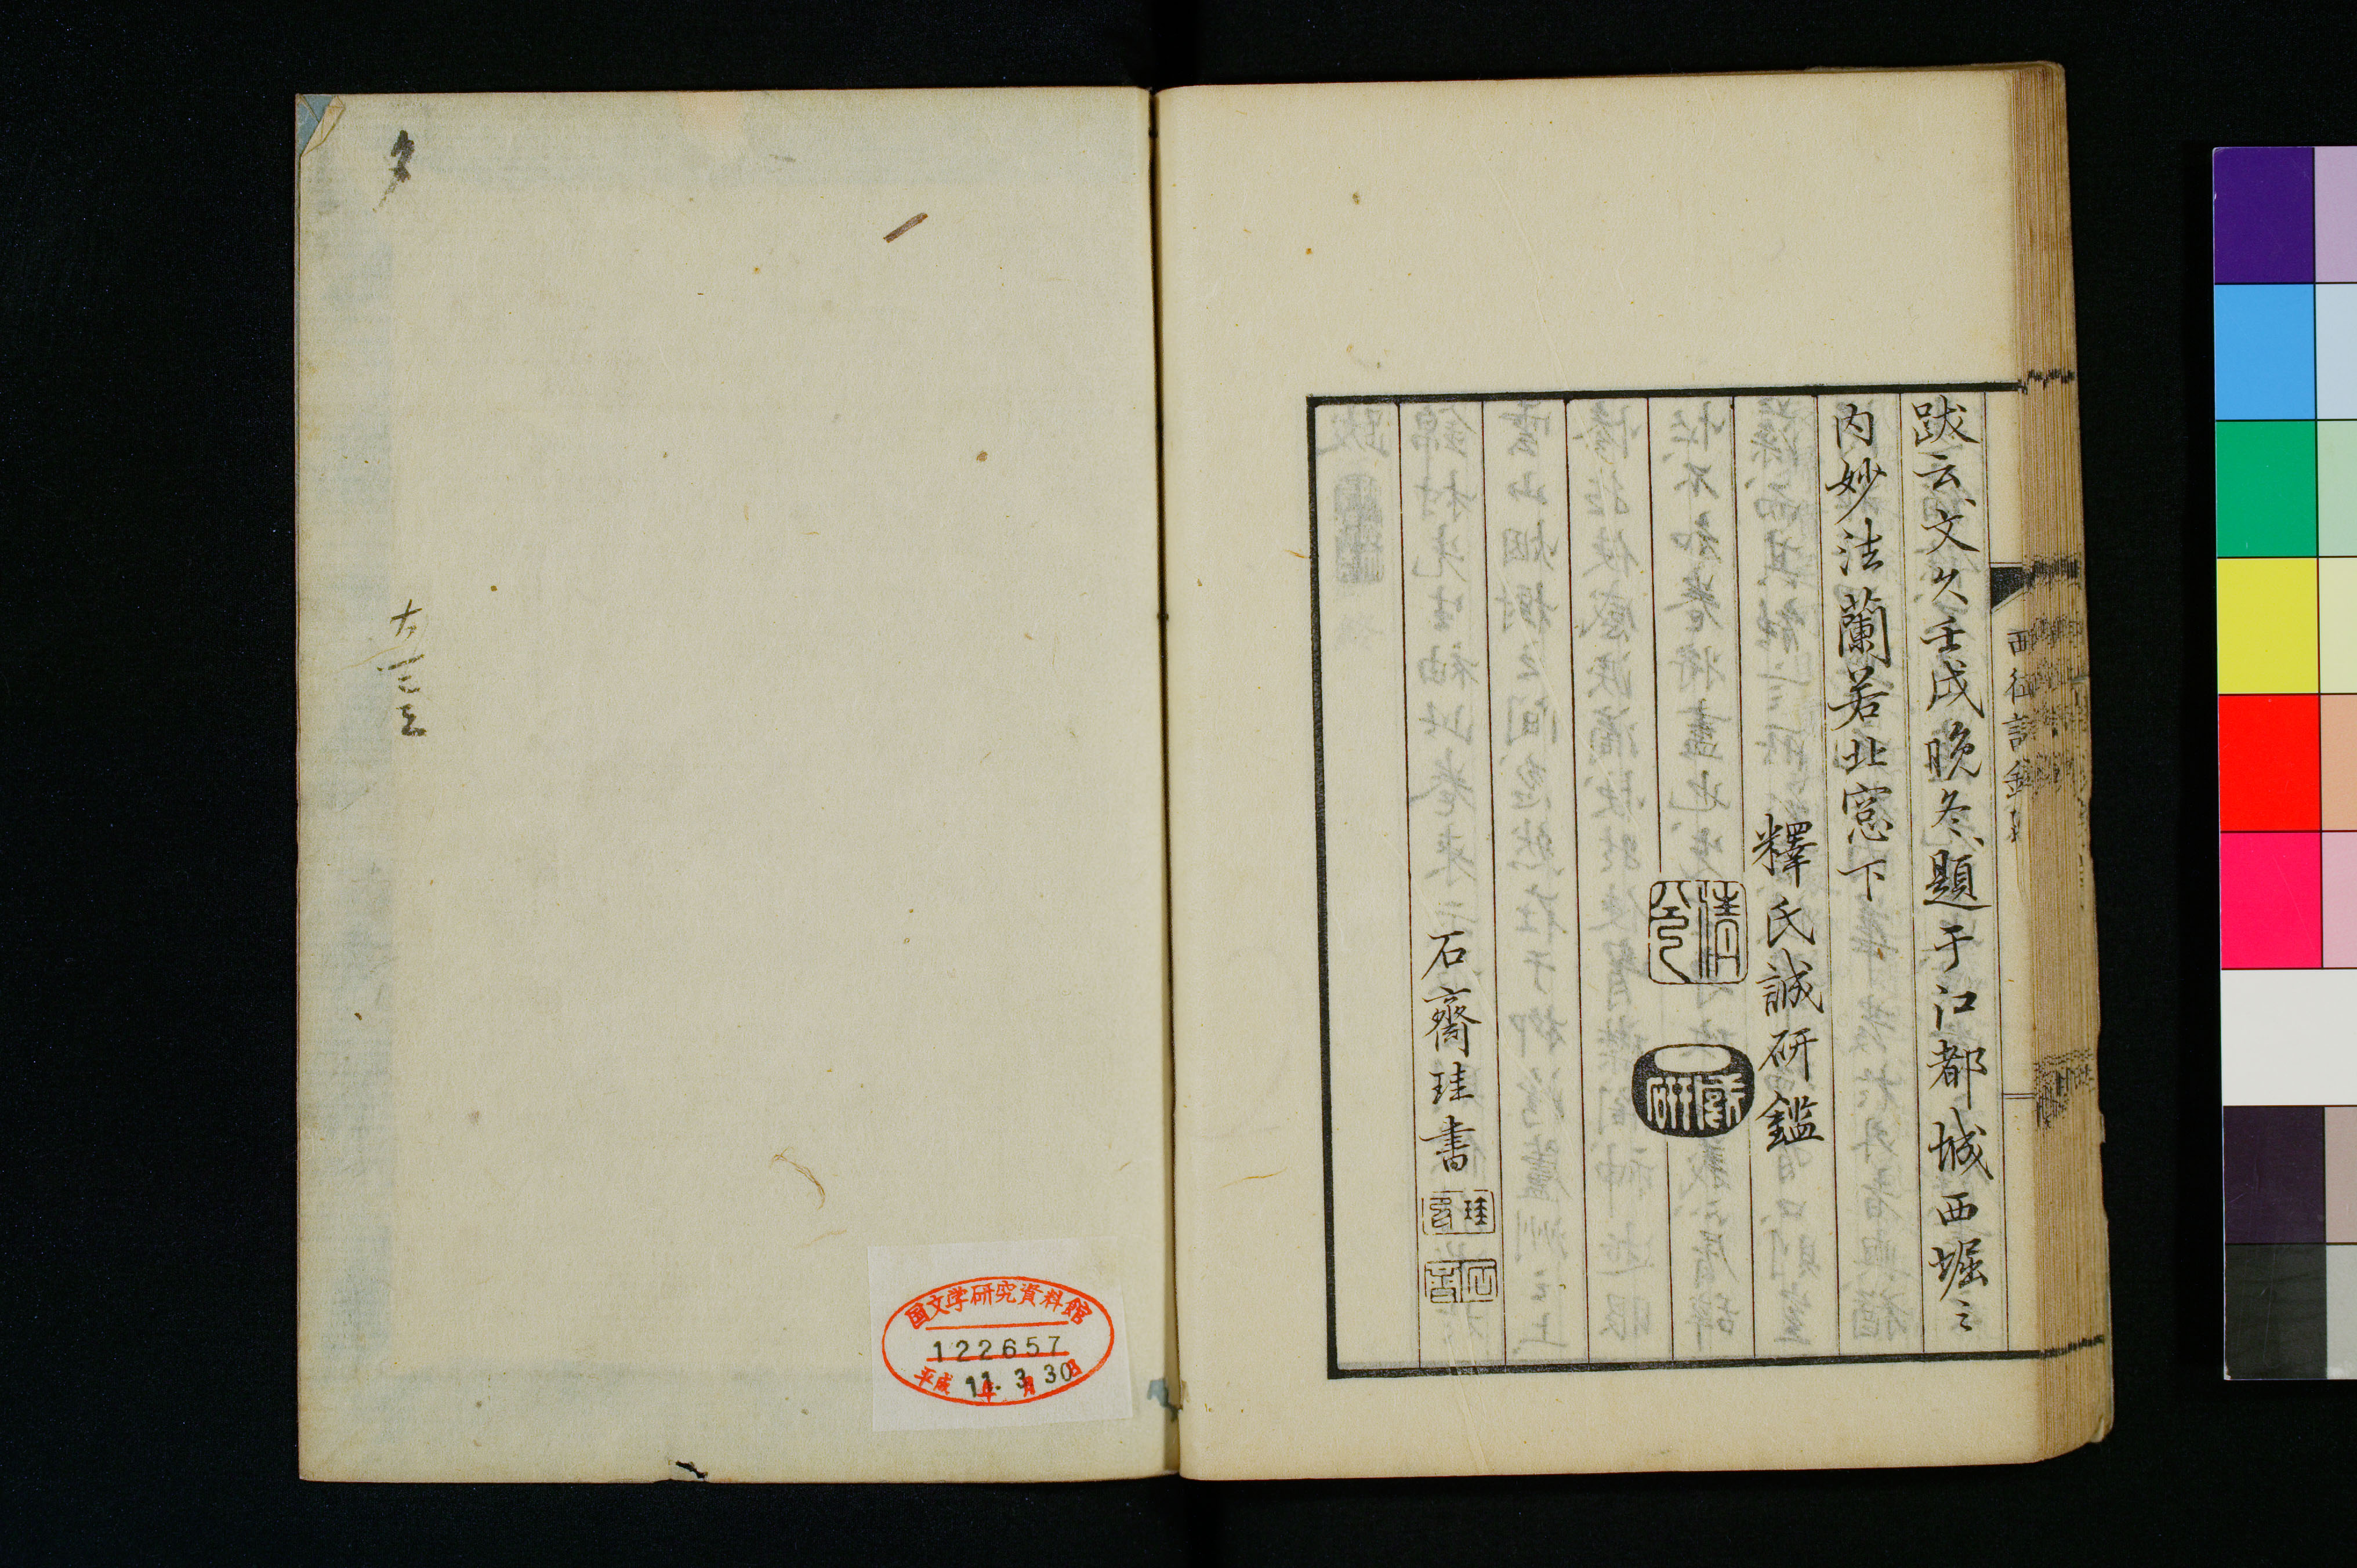 跋云文久壬戌晩冬題于江都城西堀之
内妙法蘭若北窓下
釋氏誠研鑑
石齋珪書
国文学研究資料館
122657
平成 11年 3月 30日